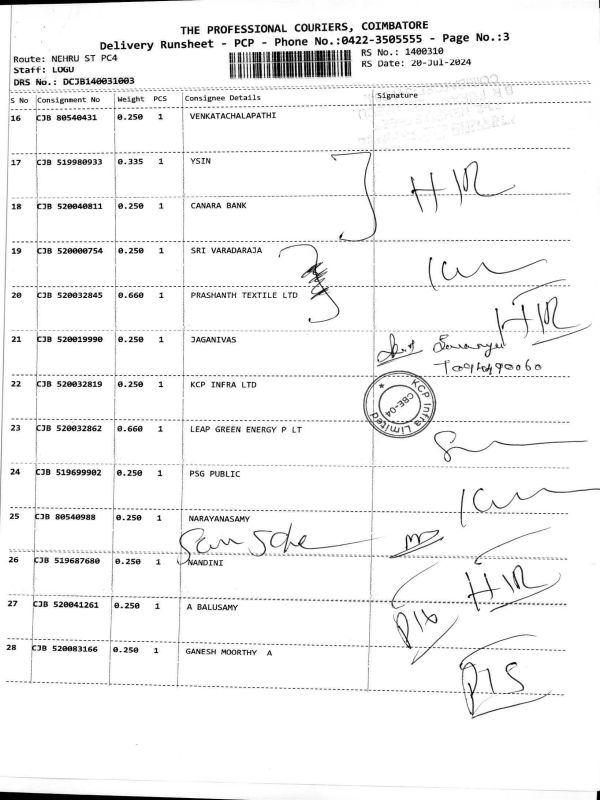 THE PROFESSIONAL COURIERS, COIMBATORE
Delivery Runsheet - PCP - Phone No.:0422-3505555 - Page No.:3
Route: NEHRU ST PC4
RS No.: 1400310
Staff: LOGU
RS Date: 20-Jul-2024
DRS No.: DCJB140031003
S No Consignment No Weight PCS Consignee Details Signature
16 CJB 80540431 0.250 1 VENKATACHALAPATHI
17 CJB 519980933 0.335 1 YSIN
HIR
18 CJB 520040811 0.250 1 CANARA BANK
19 CJB 520000754 0.250 1 SRI VARADARAJA
20 CJB 520032845 0.660 1 PRASHANTH TEXTILE LTD
HIR
21 CJB 520019990 0.250 1 JAGANIVAS
22 CJB 520032819 0.250 1 KCP INFRA LTD
KCP Infra Limited
CBE-04
23 CJB 520032862 0.660 1 LEAP GREEN ENERGY P LT
24 CJB 519699902 0.250 1 PSG PUBLIC
25 CJB 80540988 0.250 1 NARAYANASAMY
26 CJB 519687680 0.250 1 NANDINI
HIR
27 CJB 520041261 0.250 1 A BALUSAMY
28 CJB 520083166 0.250 1 GANESH MOORTHY A